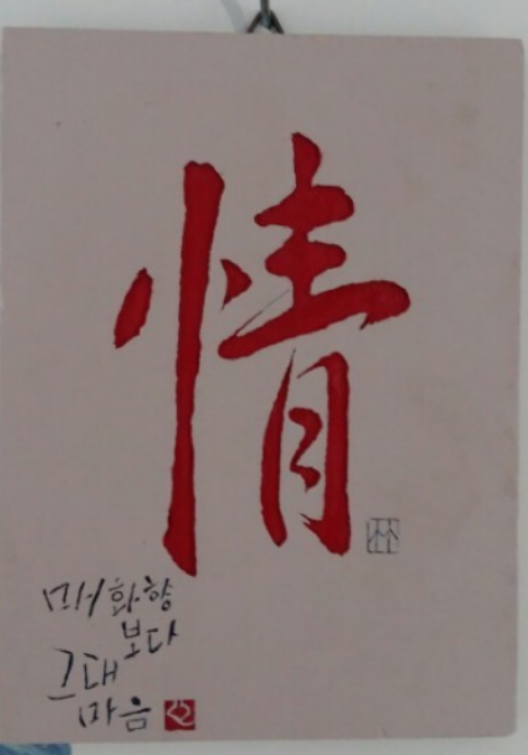 情
매화향
보다
그대
마음